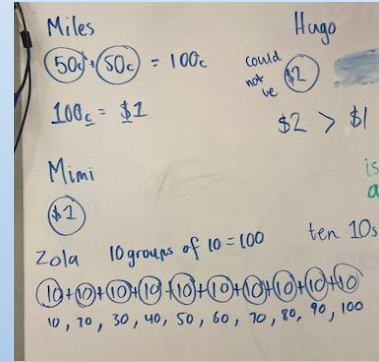 Miles
50c + 50c = 100c
100c = $1
Hugo
could
not
be $2
$2 > $1
Mimi
$1
is
a
Zola 10 groups of 10 = 100 ten 10s
10+10+10+10+10+10+10+10+10+10
10, 20, 30, 40, 50, 60, 70, 80, 90, 100